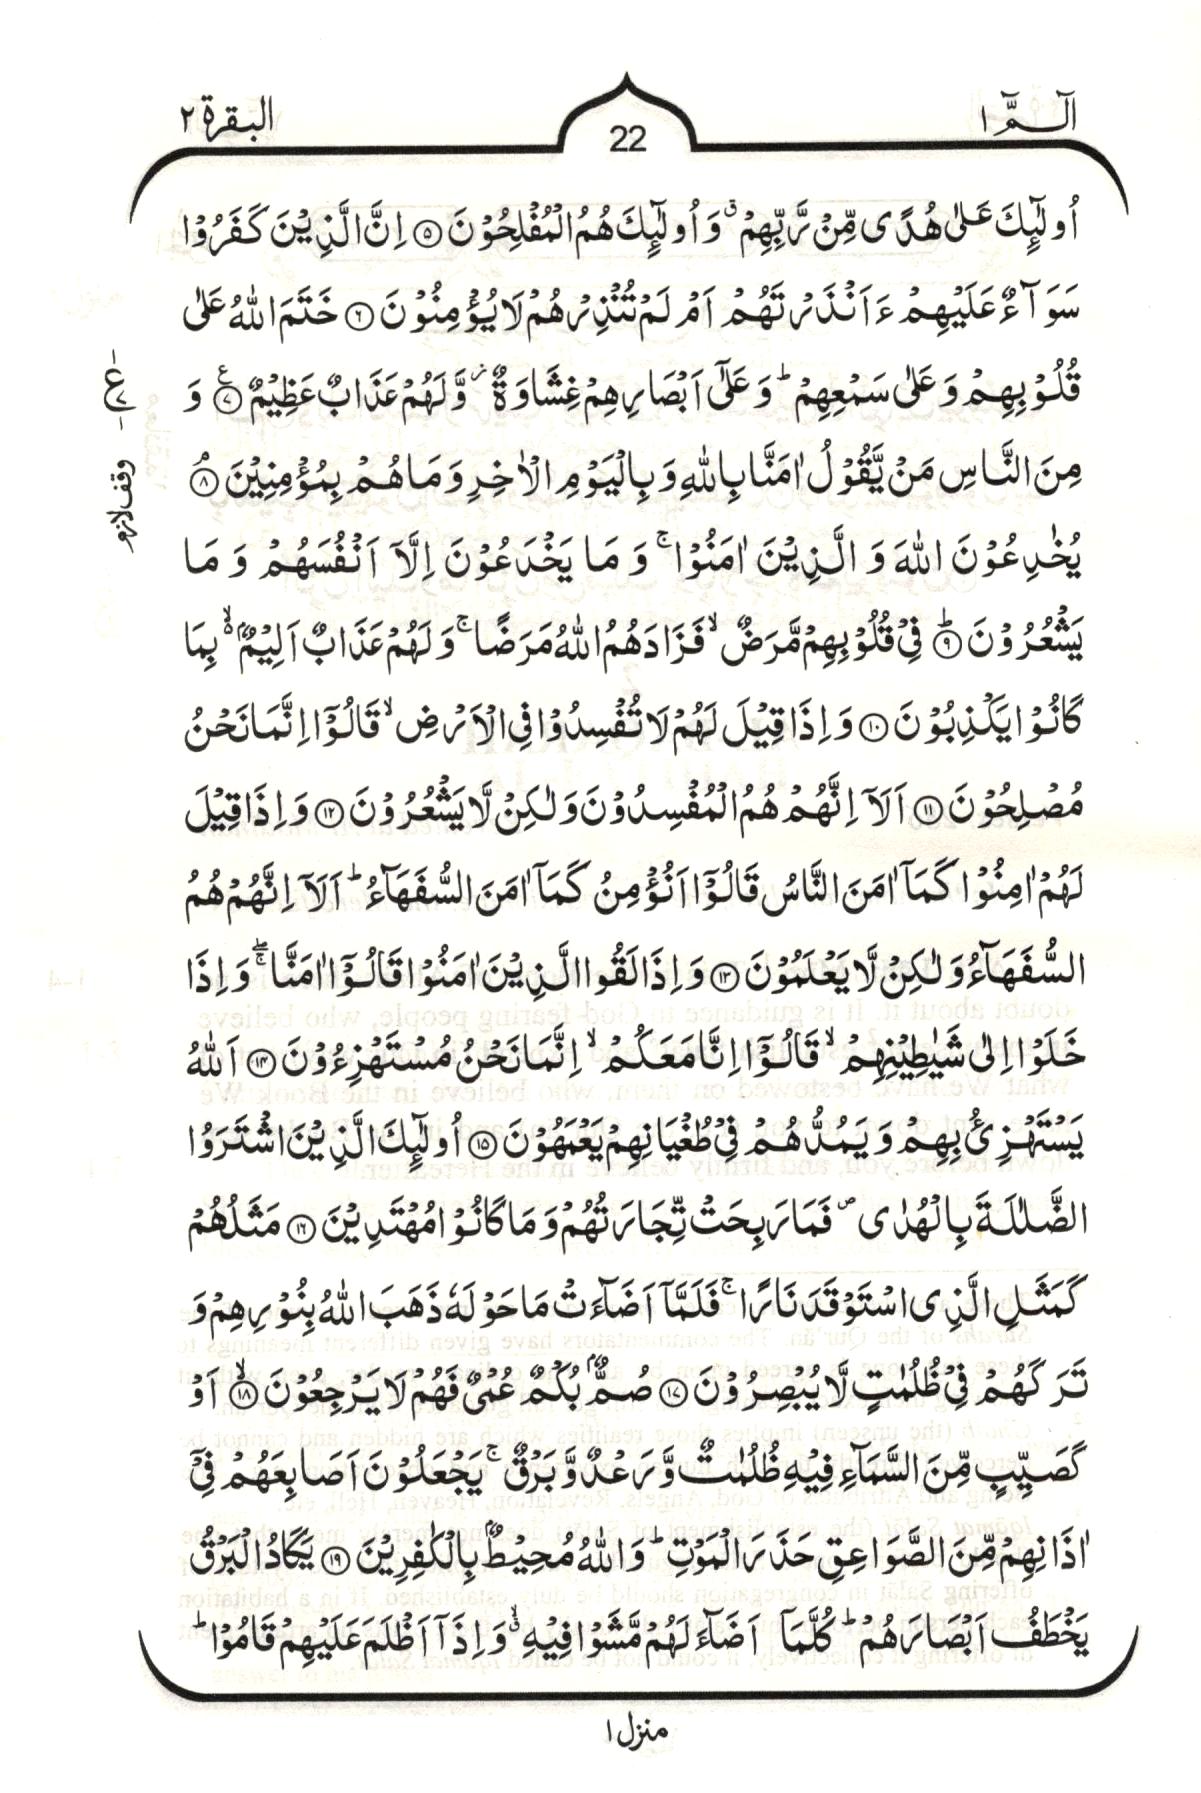 الٓـمّٓ ١
22
البقرة ٢
اُولٰٓئِكَ عَلٰی هُدًی مِّنۡ رَّبِّهِمۡ ۙ وَ اُولٰٓئِكَ هُمُ الۡمُفۡلِحُوۡنَ ﴿۵﴾ اِنَّ الَّذِیۡنَ كَفَرُوۡا
سَوَآءٌ عَلَیۡهِمۡ ءَاَنۡذَرۡتَهُمۡ اَمۡ لَمۡ تُنۡذِرۡهُمۡ لَا یُؤۡمِنُوۡنَ ﴿۶﴾ خَتَمَ اللّٰهُ عَلٰی
قُلُوۡبِهِمۡ وَ عَلٰی سَمۡعِهِمۡ ؕ وَ عَلٰۤی اَبۡصَارِهِمۡ غِشَاوَةٌ ۫ وَّ لَهُمۡ عَذَابٌ عَظِیۡمٌ ﴿۷﴾ وَ
مِنَ النَّاسِ مَنۡ یَّقُوۡلُ اٰمَنَّا بِاللّٰهِ وَ بِالۡیَوۡمِ الۡاٰخِرِ وَ مَا هُمۡ بِمُؤۡمِنِیۡنَ ﴿۸﴾
یُخٰدِعُوۡنَ اللّٰهَ وَ الَّذِیۡنَ اٰمَنُوۡا ۚ وَ مَا یَخۡدَعُوۡنَ اِلَّاۤ اَنۡفُسَهُمۡ وَ مَا
یَشۡعُرُوۡنَ ﴿۹﴾ؕ فِیۡ قُلُوۡبِهِمۡ مَّرَضٌ ۙ فَزَادَهُمُ اللّٰهُ مَرَضًا ۚ وَ لَهُمۡ عَذَابٌ اَلِیۡمٌۢ ۙ بِمَا
كَانُوۡا یَكۡذِبُوۡنَ ﴿۱۰﴾ وَ اِذَا قِیۡلَ لَهُمۡ لَا تُفۡسِدُوۡا فِی الۡاَرۡضِ ۙ قَالُوۡۤا اِنَّمَا نَحۡنُ
مُصۡلِحُوۡنَ ﴿۱۱﴾ اَلَاۤ اِنَّهُمۡ هُمُ الۡمُفۡسِدُوۡنَ وَ لٰكِنۡ لَّا یَشۡعُرُوۡنَ ﴿۱۲﴾ وَ اِذَا قِیۡلَ
لَهُمۡ اٰمِنُوۡا كَمَاۤ اٰمَنَ النَّاسُ قَالُوۡۤا اَنُؤۡمِنُ كَمَاۤ اٰمَنَ السُّفَهَآءُ ؕ اَلَاۤ اِنَّهُمۡ هُمُ
السُّفَهَآءُ وَ لٰكِنۡ لَّا یَعۡلَمُوۡنَ ﴿۱۳﴾ وَ اِذَا لَقُوا الَّذِیۡنَ اٰمَنُوۡا قَالُوۡۤا اٰمَنَّا ۚۖ وَ اِذَا
خَلَوۡا اِلٰی شَیٰطِیۡنِهِمۡ ۙ قَالُوۡۤا اِنَّا مَعَكُمۡ ۙ اِنَّمَا نَحۡنُ مُسۡتَهۡزِءُوۡنَ ﴿۱۴﴾ اَللّٰهُ
یَسۡتَهۡزِئُ بِهِمۡ وَ یَمُدُّهُمۡ فِیۡ طُغۡیَانِهِمۡ یَعۡمَهُوۡنَ ﴿۱۵﴾ اُولٰٓئِكَ الَّذِیۡنَ اشۡتَرَوُا
الضَّلٰلَةَ بِالۡهُدٰی ۪ فَمَا رَبِحَتۡ تِّجَارَتُهُمۡ وَ مَا كَانُوۡا مُهۡتَدِیۡنَ ﴿۱۶﴾ مَثَلُهُمۡ
كَمَثَلِ الَّذِی اسۡتَوۡقَدَ نَارًا ۚ فَلَمَّاۤ اَضَآءَتۡ مَا حَوۡلَهٗ ذَهَبَ اللّٰهُ بِنُوۡرِهِمۡ وَ
تَرَكَهُمۡ فِیۡ ظُلُمٰتٍ لَّا یُبۡصِرُوۡنَ ﴿۱۷﴾ صُمٌّۢ بُكۡمٌ عُمۡیٌ فَهُمۡ لَا یَرۡجِعُوۡنَ ﴿۱۸﴾ۙ اَوۡ
كَصَیِّبٍ مِّنَ السَّمَآءِ فِیۡهِ ظُلُمٰتٌ وَّ رَعۡدٌ وَّ بَرۡقٌ ۚ یَجۡعَلُوۡنَ اَصَابِعَهُمۡ فِیۡۤ
اٰذَانِهِمۡ مِّنَ الصَّوَاعِقِ حَذَرَ الۡمَوۡتِ ؕ وَ اللّٰهُ مُحِیۡطٌۢ بِالۡكٰفِرِیۡنَ ﴿۱۹﴾ یَكَادُ الۡبَرۡقُ
یَخۡطَفُ اَبۡصَارَهُمۡ ؕ كُلَّمَاۤ اَضَآءَ لَهُمۡ مَّشَوۡا فِیۡهِ ۙ وَ اِذَاۤ اَظۡلَمَ عَلَیۡهِمۡ قَامُوۡا ؕ
ع
وقف لازم
منزل ١